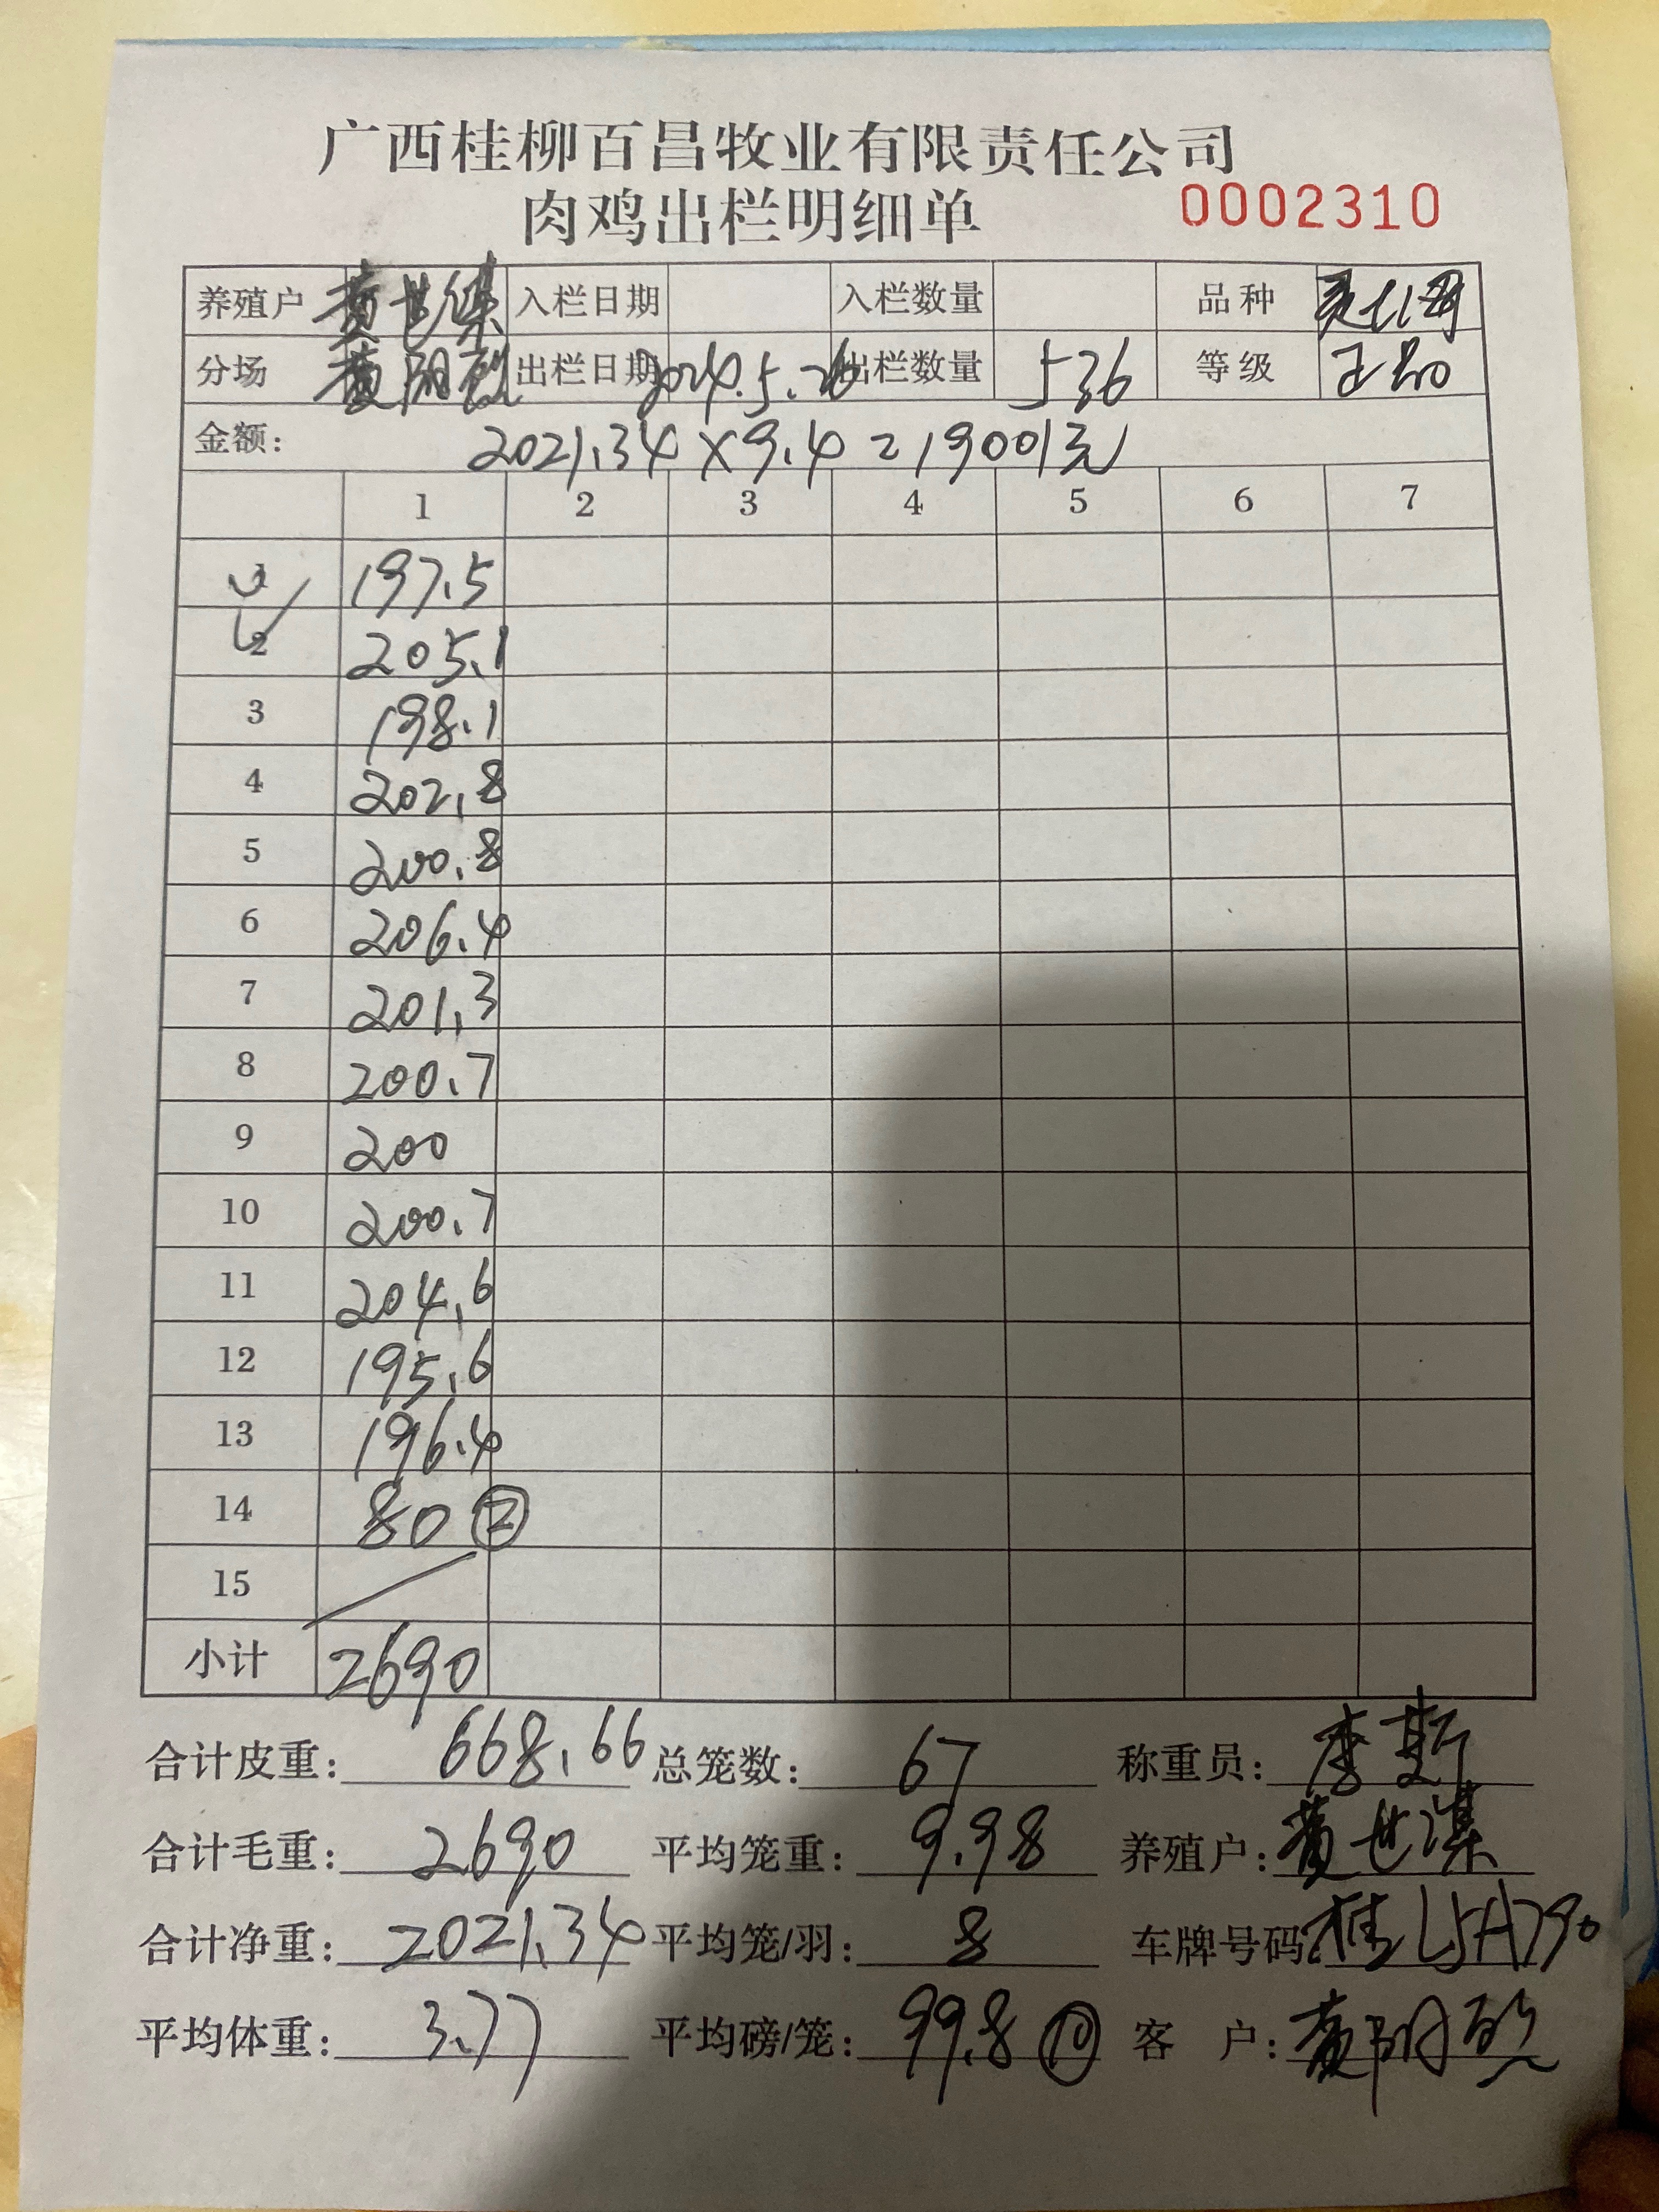 广西桂柳百昌牧业有限责任公司
肉鸡出栏明细单 0002310
养殖户 黄世集 入栏日期 入栏数量 品种
分场 黄 出栏日期 2024.5.26 出栏数量 536 等级 正品
金额: 2021.34×9.4=19001元
1 2 3 4 5 6 7
1 197.5
2 205.1
3 198.1
4 202.8
5 200.8
6 206.4
7 201.3
8 200.7
9 200
10 200.7
11 204.6
12 195.6
13 196.4
14 80 ②
15
小计 2690
合计皮重: 668.66 总笼数: 67 称重员: 李
合计毛重: 2690 平均笼重: 9.98 养殖户: 黄世
合计净重: 2021.34 平均笼/羽: 8 车牌号码: 桂L5A790
平均体重: 3.77 平均磅/笼: 99.8 ⑩ 客 户: 黄